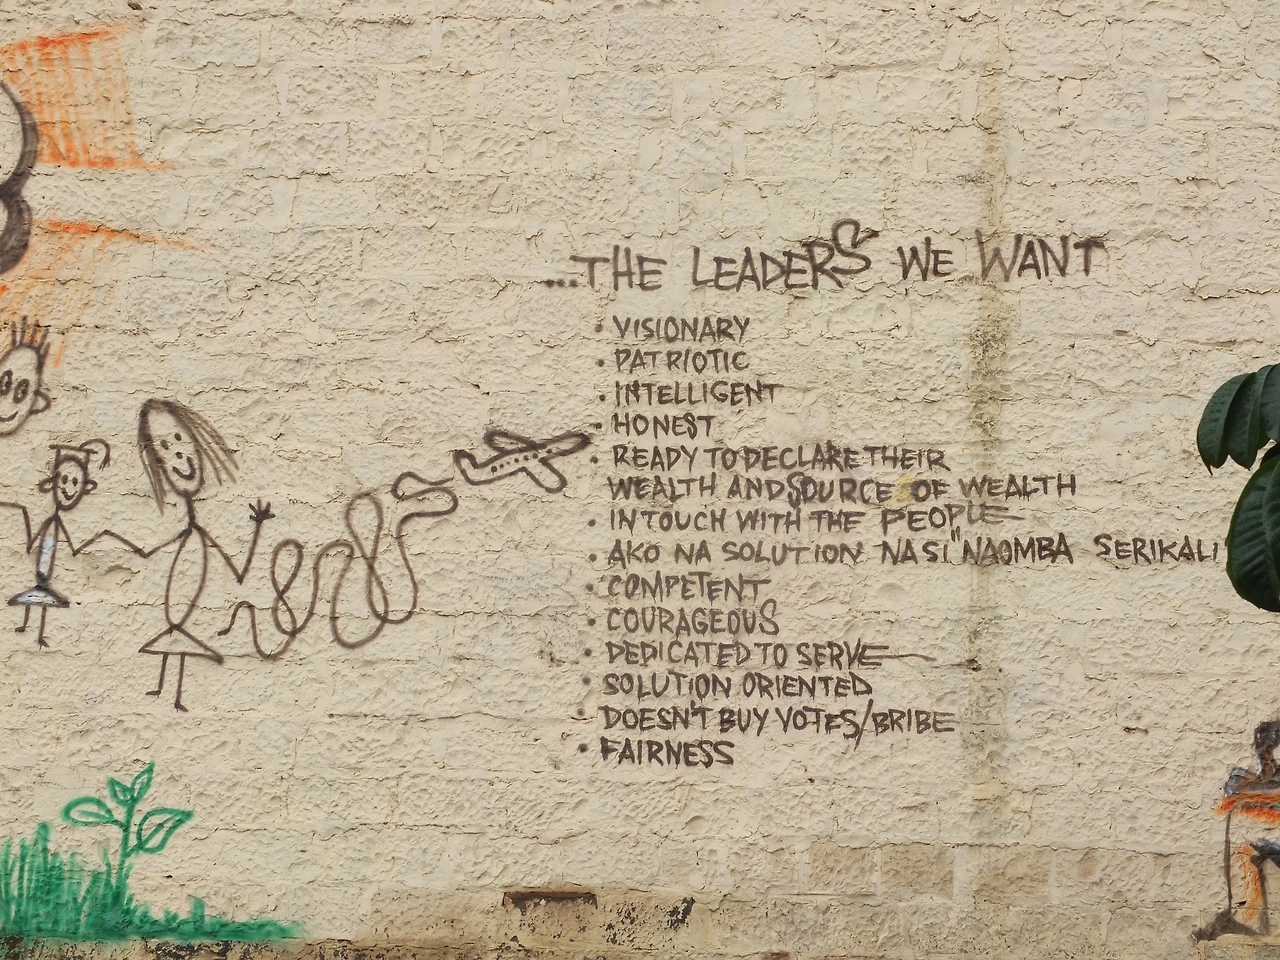 ...THE LEADERS WE WANT
• VISIONARY
• PATRIOTIC
• INTELLIGENT
• HONEST
• READY TO DECLARE THEIR
WEALTH AND SOURCE OF WEALTH
• IN TOUCH WITH THE PEOPLE
• AKO NA SOLUTION NA SI "NAOMBA SERIKALI
• COMPETENT
• COURAGEOUS
• DEDICATED TO SERVE
• SOLUTION ORIENTED
• DOESN'T BUY VOTES/BRIBE
• FAIRNESS